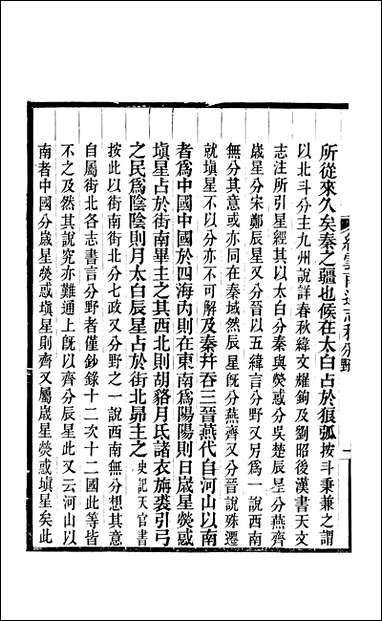 所從來久矣秦之疆也候在太白占於狼弧按斗秉兼之謂
以北斗分主九州說詳春秋緯文耀鉤及劉昭後漢書天文
志注所引星經其以太白分秦與熒惑分吳楚辰星分燕齊
歲星分宋鄭辰星又分晉以五緯言分野又另為一說西南
無分其意或亦同在秦域然辰星旣分燕齊又分晉說殊遷
就填星不以分亦不可解及秦幷吞三晉燕代自河山以南
者為中國中國於四海內則在東南為陽陽則日歲星熒惑
填星占於街南畢主之其西北則胡貉月氏諸衣旃裘引弓
之民為陰陰則月太白辰星占於街北昴主之史記天官書
按此以街南街北分七政又分野之一說西南無分想其意
自屬街北各志書言分野者僅鈔錄十二次十二國此等皆
不之及然其說究亦難通上旣以齊分辰星此又云河山以
南者中國分歲星熒惑填星則齊又屬歲星熒惑填星矣此
續雲南通志稿分野